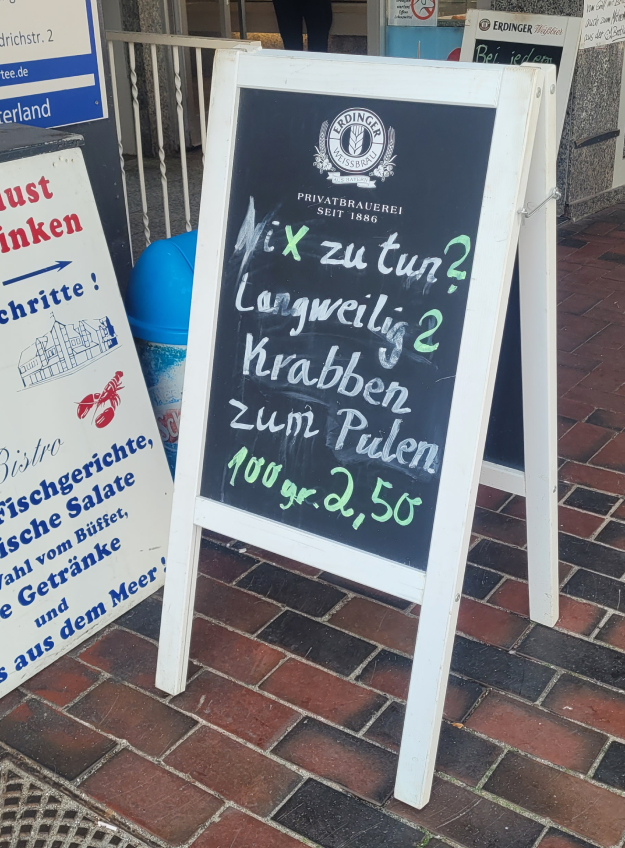 drichstr. 2
tee.de
terland
ust
inken
chritte !
Bistro
Fischgerichte,
ische Salate
Wahl vom Büffet,
e Getränke
und
s aus dem Meer !
ERDINGER
WEISSBRÄU
PRIVATBRAUEREI
SEIT 1886
Nix zu tun?
Langweilig?
Krabben
zum Pulen
100gr. 2,50
ERDINGER Weißbier
Bei jedem